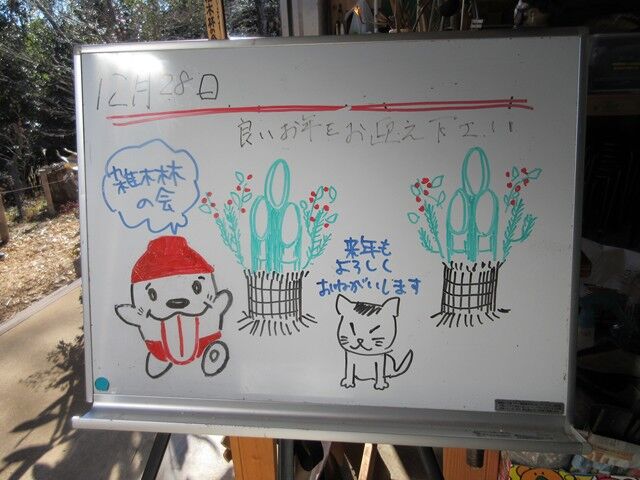 12月28日
良いお年をお迎え下さい
雑木林
の会
来年も
よろしく
おねがいします